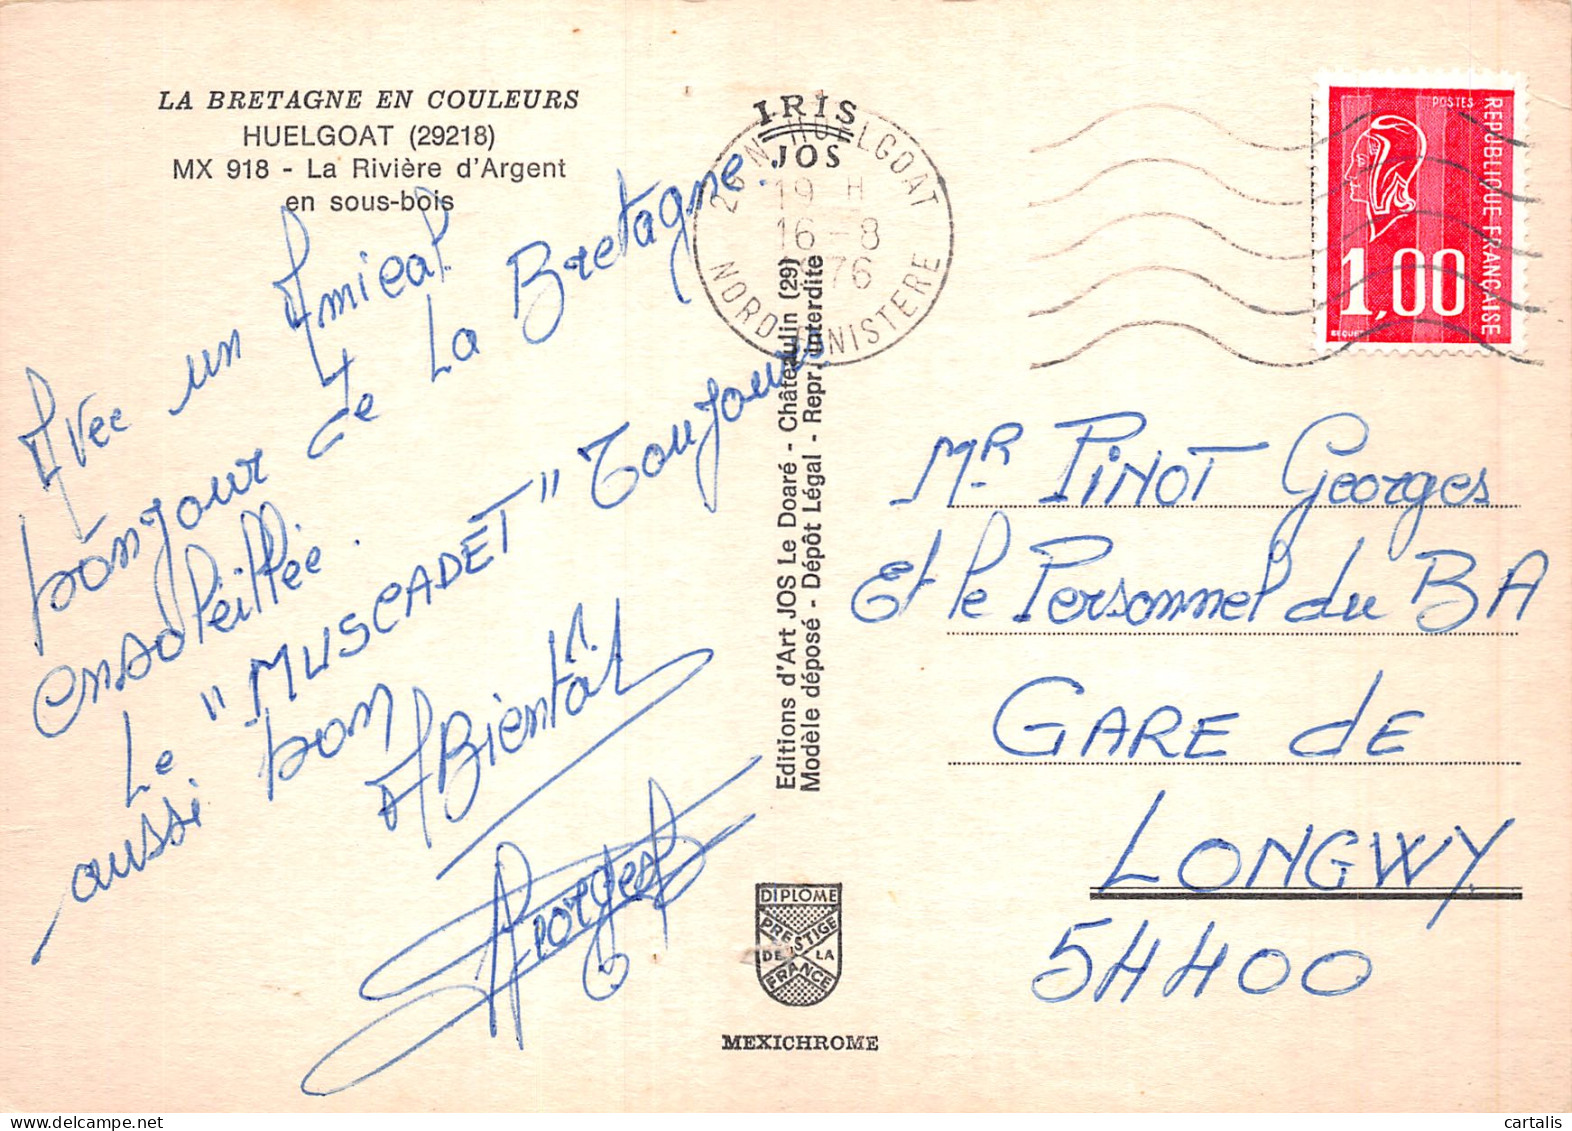 LA BRETAGNE EN COULEURS
HUELGOAT (29218)
MX 918 - La Rivière d'Argent
en sous-bois
Avec un Amical
bonjour de La Bretagne.
ensoleillée.
Le "MUSCADET" Toujours
aussi bon
A Bientôt
Georges
IRIS
JOS
HUELGOAT
19 H
16-8
1976
NORD FINISTERE
Editions d'Art JOS Le Doaré - Châteaulin (29)
Modèle déposé - Dépôt Légal - Repr. interdite
POSTES
REPUBLIQUE FRANÇAISE
1,00
Mr PINOT Georges
Et le Personnel du BA
GARE de
LONGWY
54400
DIPLOME
PRESTIGE
DE LA
FRANCE
MEXICHROME
cartalis